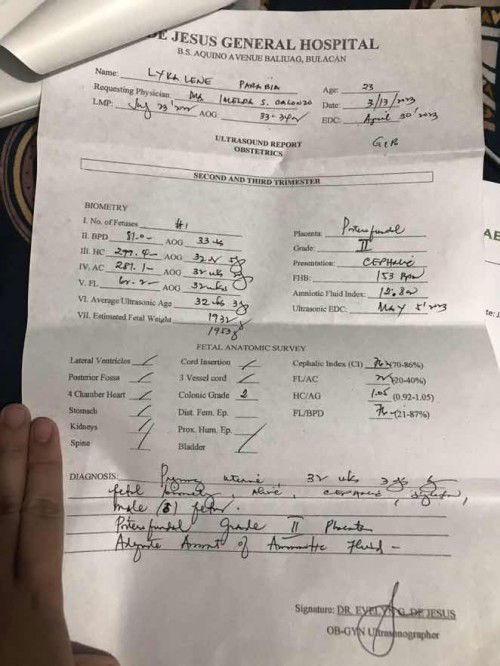 DE JESUS GENERAL HOSPITAL
B.S. AQUINO AVENUE BALIUAG, BULACAN
Name: LYKA LENE PARABIA Age: 23
Requesting Physician: IMELDA S. Date: 3/13/2023
LMP: July 23 '2022 AOG 33-34w EDC: April 30 '2023
ULTRASOUND REPORT
OBSTETRICS
SECOND AND THIRD TRIMESTER
BIOMETRY
I. No. of Fetuses #1 Placenta: Posterofundal
II. BPD 81.0 AOG 33 wks Grade: II
III. HC 299.4 AOG 32 w Presentation: CEPHALIC
IV. AC 281.1 AOG 32 wks FHB: 153 bpm
V. FL AOG 32 wks Amniotic Fluid Index:
VI. Average Ultrasonic Age 32 wks 3 Ultrasonic EDC: MAY 5 '2023
VII. Estimated Fetal Weight 1932
1953 g
FETAL ANATOMIC SURVEY
Lateral Ventricles Cord Insertion Cephalic Index (CI) (70-86%)
Posterior Fossa 3 Vessel cord FL/AC (20-40%)
4 Chamber Heart Colonic Grade 2 HC/AG 1.05 (0.92-1.05)
Stomach Dist. Fem. Ep. FL/BPD (21-87%)
Kidneys Prox. Hum. Ep.
Spine Bladder
DIAGNOSIS: uterine, 32 wks 3
fetal biometry, alive, cephalic, singleton,
male (♂) fetus.
Posterofundal Grade II Placenta
Adequate Amount of Amniotic Fluid -
Signature: DR. EVELYN G. DE JESUS
OB-GYN Ultrasonographer